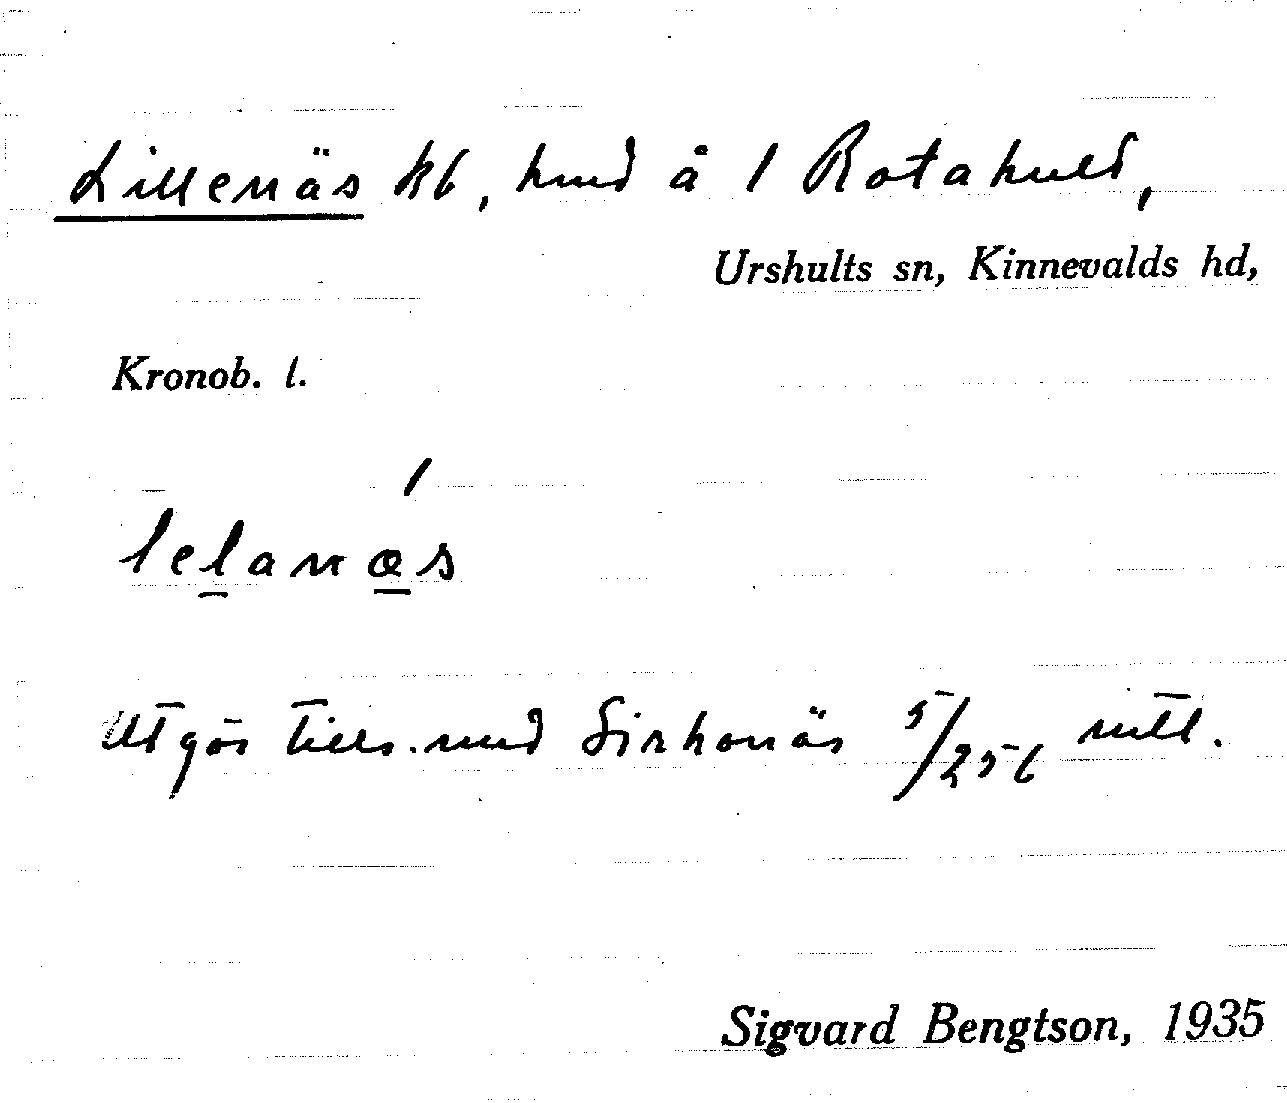 Lillenäs kl, hmd å 1 Rotahult,
Urshults sn, Kinnevalds hd,
Kronob. l.
/
lelanæs
Utgör tills. med Sirkonäs 5/256 mtl.
Sigvard Bengtson, 1935